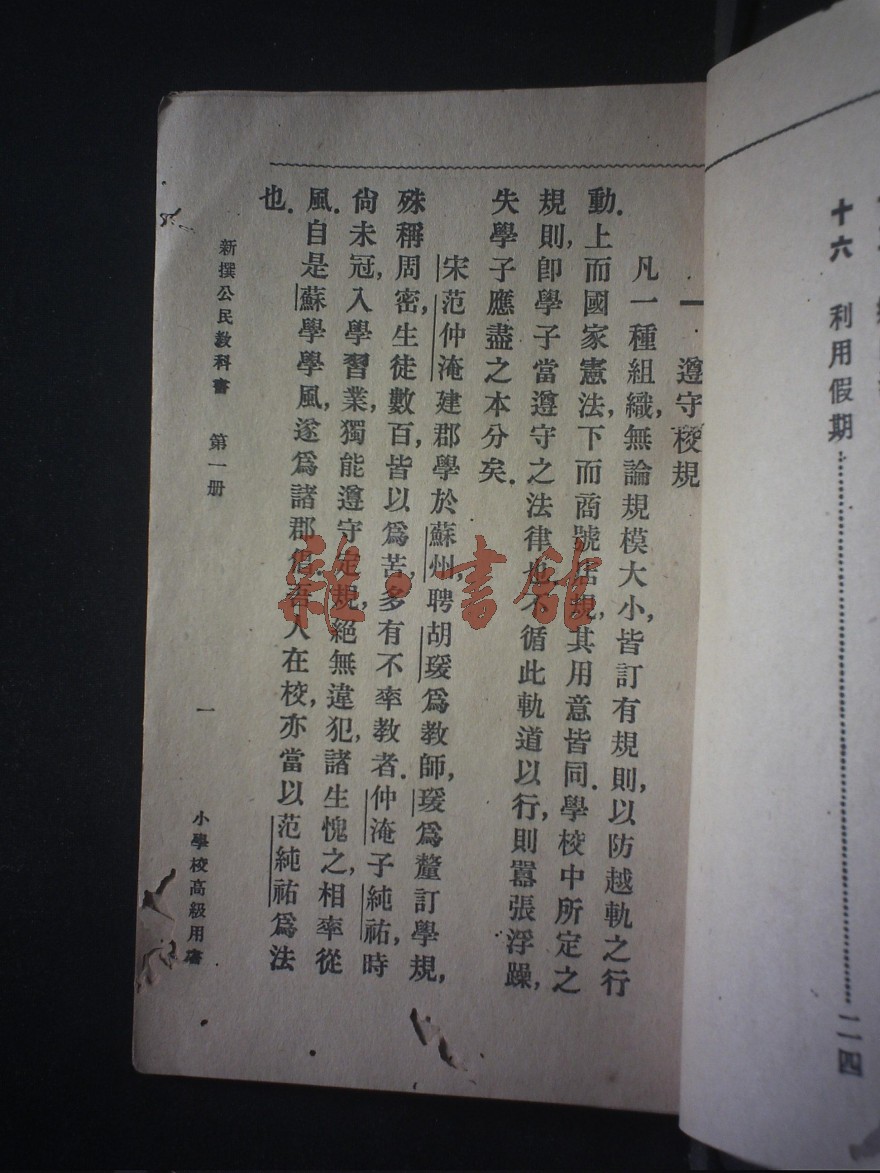 十六　利用假期……………二四
一　遵守校規
凡一種組織,無論規模大小,皆訂有規則,以防越軌之行
動.上而國家憲法,下而商號店規,其用意皆同.學校中所定之
規則,即學子當遵守之法律也.不循此軌道以行,則囂張浮躁,
失學子應盡之本分矣.
宋范仲淹建郡學於蘇州,聘胡瑗爲教師,瑗爲釐訂學規,
殊稱周密,生徒數百,皆以爲苦,多有不率教者.仲淹子純祐,時
尙未冠,入學習業,獨能遵守定規,絕無違犯,諸生愧之,相率從
風.自是蘇學學風,遂爲諸郡倡.吾人在校,亦當以范純祐爲法
也.
新撰公民教科書　第一册　一　小學校高級用書
雜·書館